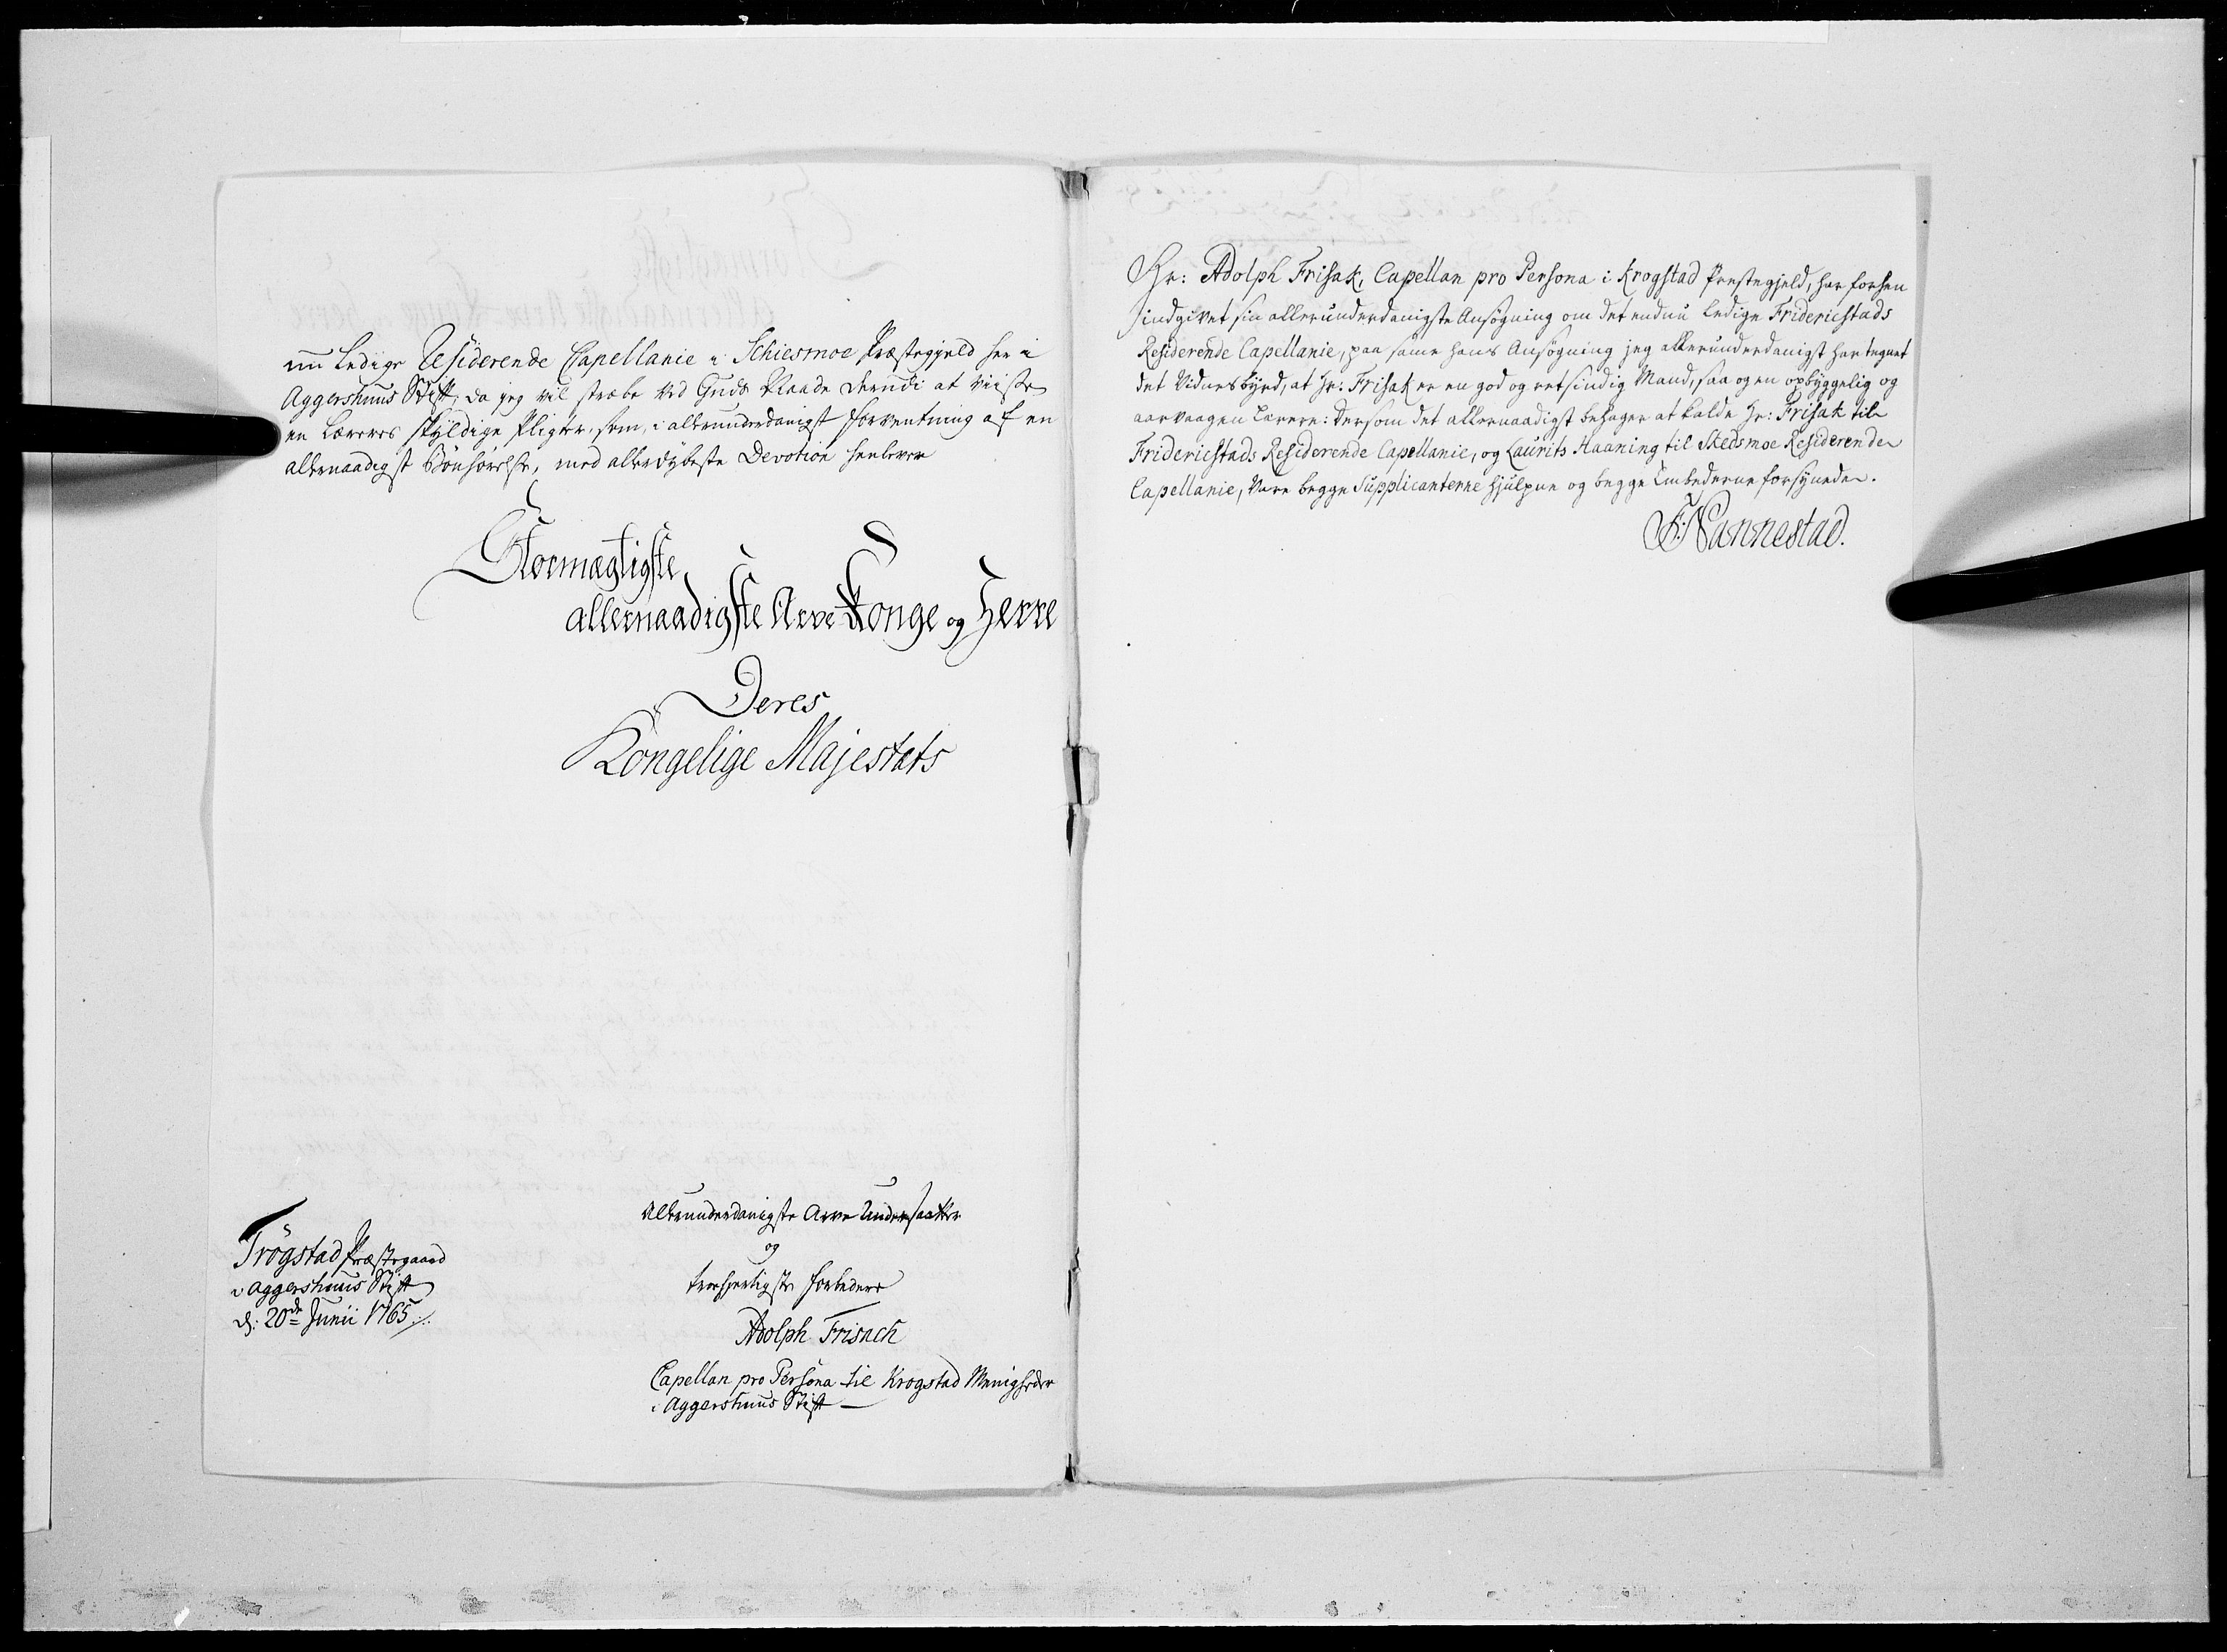 nu ledige Residerende Capellanie i Schiesmoe Præstegjeld her i
Aggershuus Stift, da jeg vil stræbe ved Guds Naade derudi at viise
en Læreres skyldige Pligter, som, i allerunderdanigst Forventning af en
allernaadigst Bönhörelse, med allerdybeste Devotion henlever
Stormægtigste
allernaadigste Arve Konge og Herre
Deres
Kongelige Majestæts
Allerunderdanigste Arve Undersaatter
og
troehiertigste Forbedere
Adolph Frisach
Capellan pro Persona til Krogstad Menigheder
i Aggershuus Stift
Trögstad Præstegaard
i Aggershuus Stift
d: 20de Junii 1765
Hr: Adolph Frisak, Capellan pro Persona i Krogstad Prestegjeld, har forhen
indgivet sin allerunderdanigste Ansögning om det endnu ledige Fridericstads
Residerende Capellanie, paa samme hans Ansögning jeg allerunderdanigst har tegnet
det Vidnesbyrd, at Hr: Frisak er en god og retsindig Mand, saa og en opbyggelig og
aarvaagen Lærere: Dersom det allernaadigst behager at kalde Hr: Frisak til
Fridericstads Residerende Capellanie, og Laurits Haaning til Skedsmoe Residerende
Capellanie, vare begge Supplicanterne hjulpne og begge Embederne forsynede.
F: Nannestad.